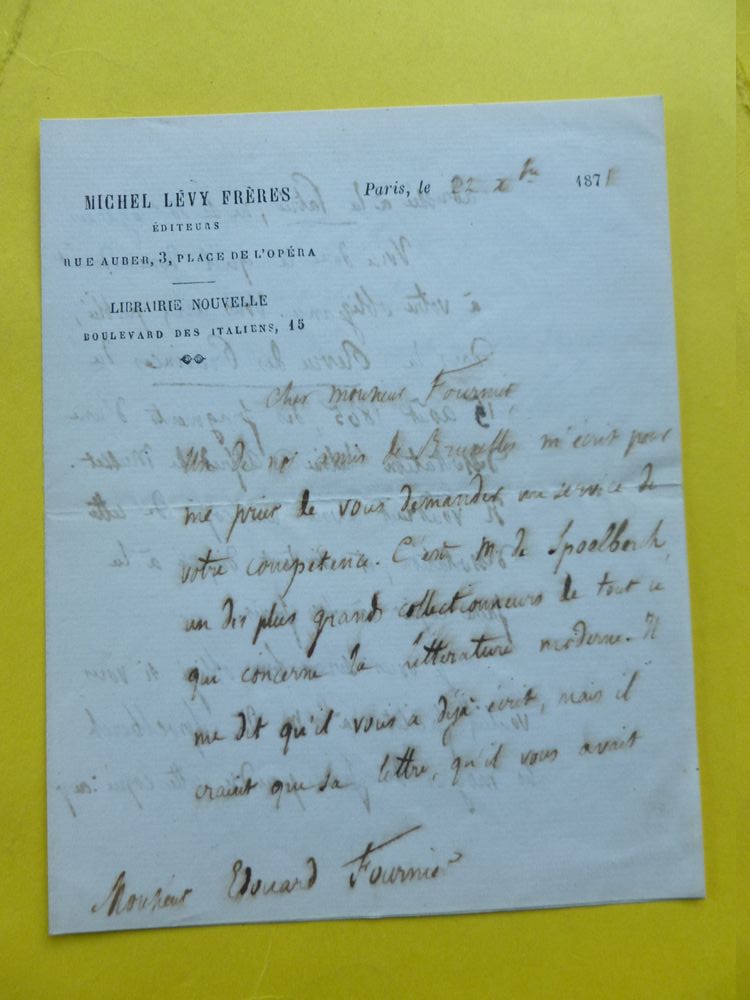 MICHEL LÉVY FRÈRES
ÉDITEURS
RUE AUBER, 3, PLACE DE L'OPÉRA
LIBRAIRIE NOUVELLE
BOULEVARD DES ITALIENS, 15
Paris, le 22 Xbre 1871
Cher Monsieur Fournier
Un de nos amis de Bruxelles m'écrit pour
me prier de vous demander un service de
votre compétence. C'est M. de Spoelberch,
un des plus grands collectionneurs de tout ce
qui concerne la littérature moderne. Il
me dit qu'il vous a déjà écrit, mais il
craint que sa lettre, qu'il vous avait
Monsieur Edouard Fournier